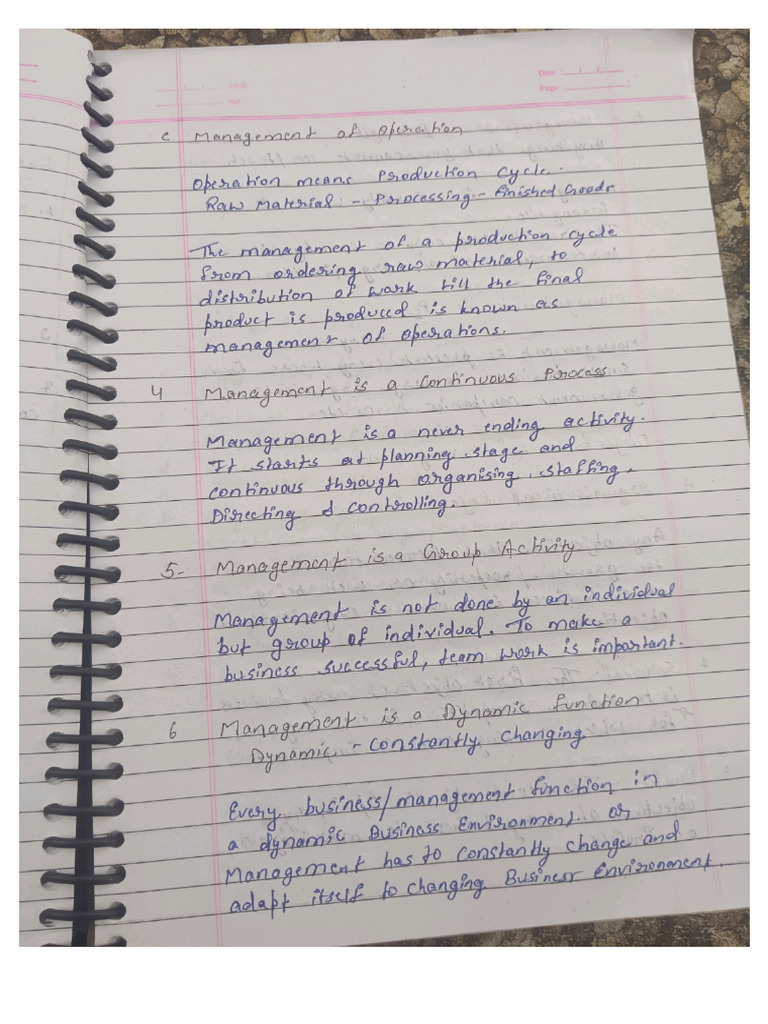 Date : / /
Page :
c Management of Operation
Operation means Production Cycle.
Raw Material - Processing - Finished Goods
The management of a production cycle
from ordering raw material, to
distribution of work till the final
product is produced is known as
management of operations.
4 Management is a Continuous Process
Management is a never ending activity.
It starts at planning stage and
continuous through organising, staffing,
Directing & controlling.
5- Management is a Group Activity
Management is not done by an individual
but group of individual. To make a
business successful, team work is important.
6 Management is a Dynamic function
Dynamic - constantly changing
Every business/management function in
a dynamic Business Environment or
Management has to constantly change and
adapt itself to changing Business Environment.